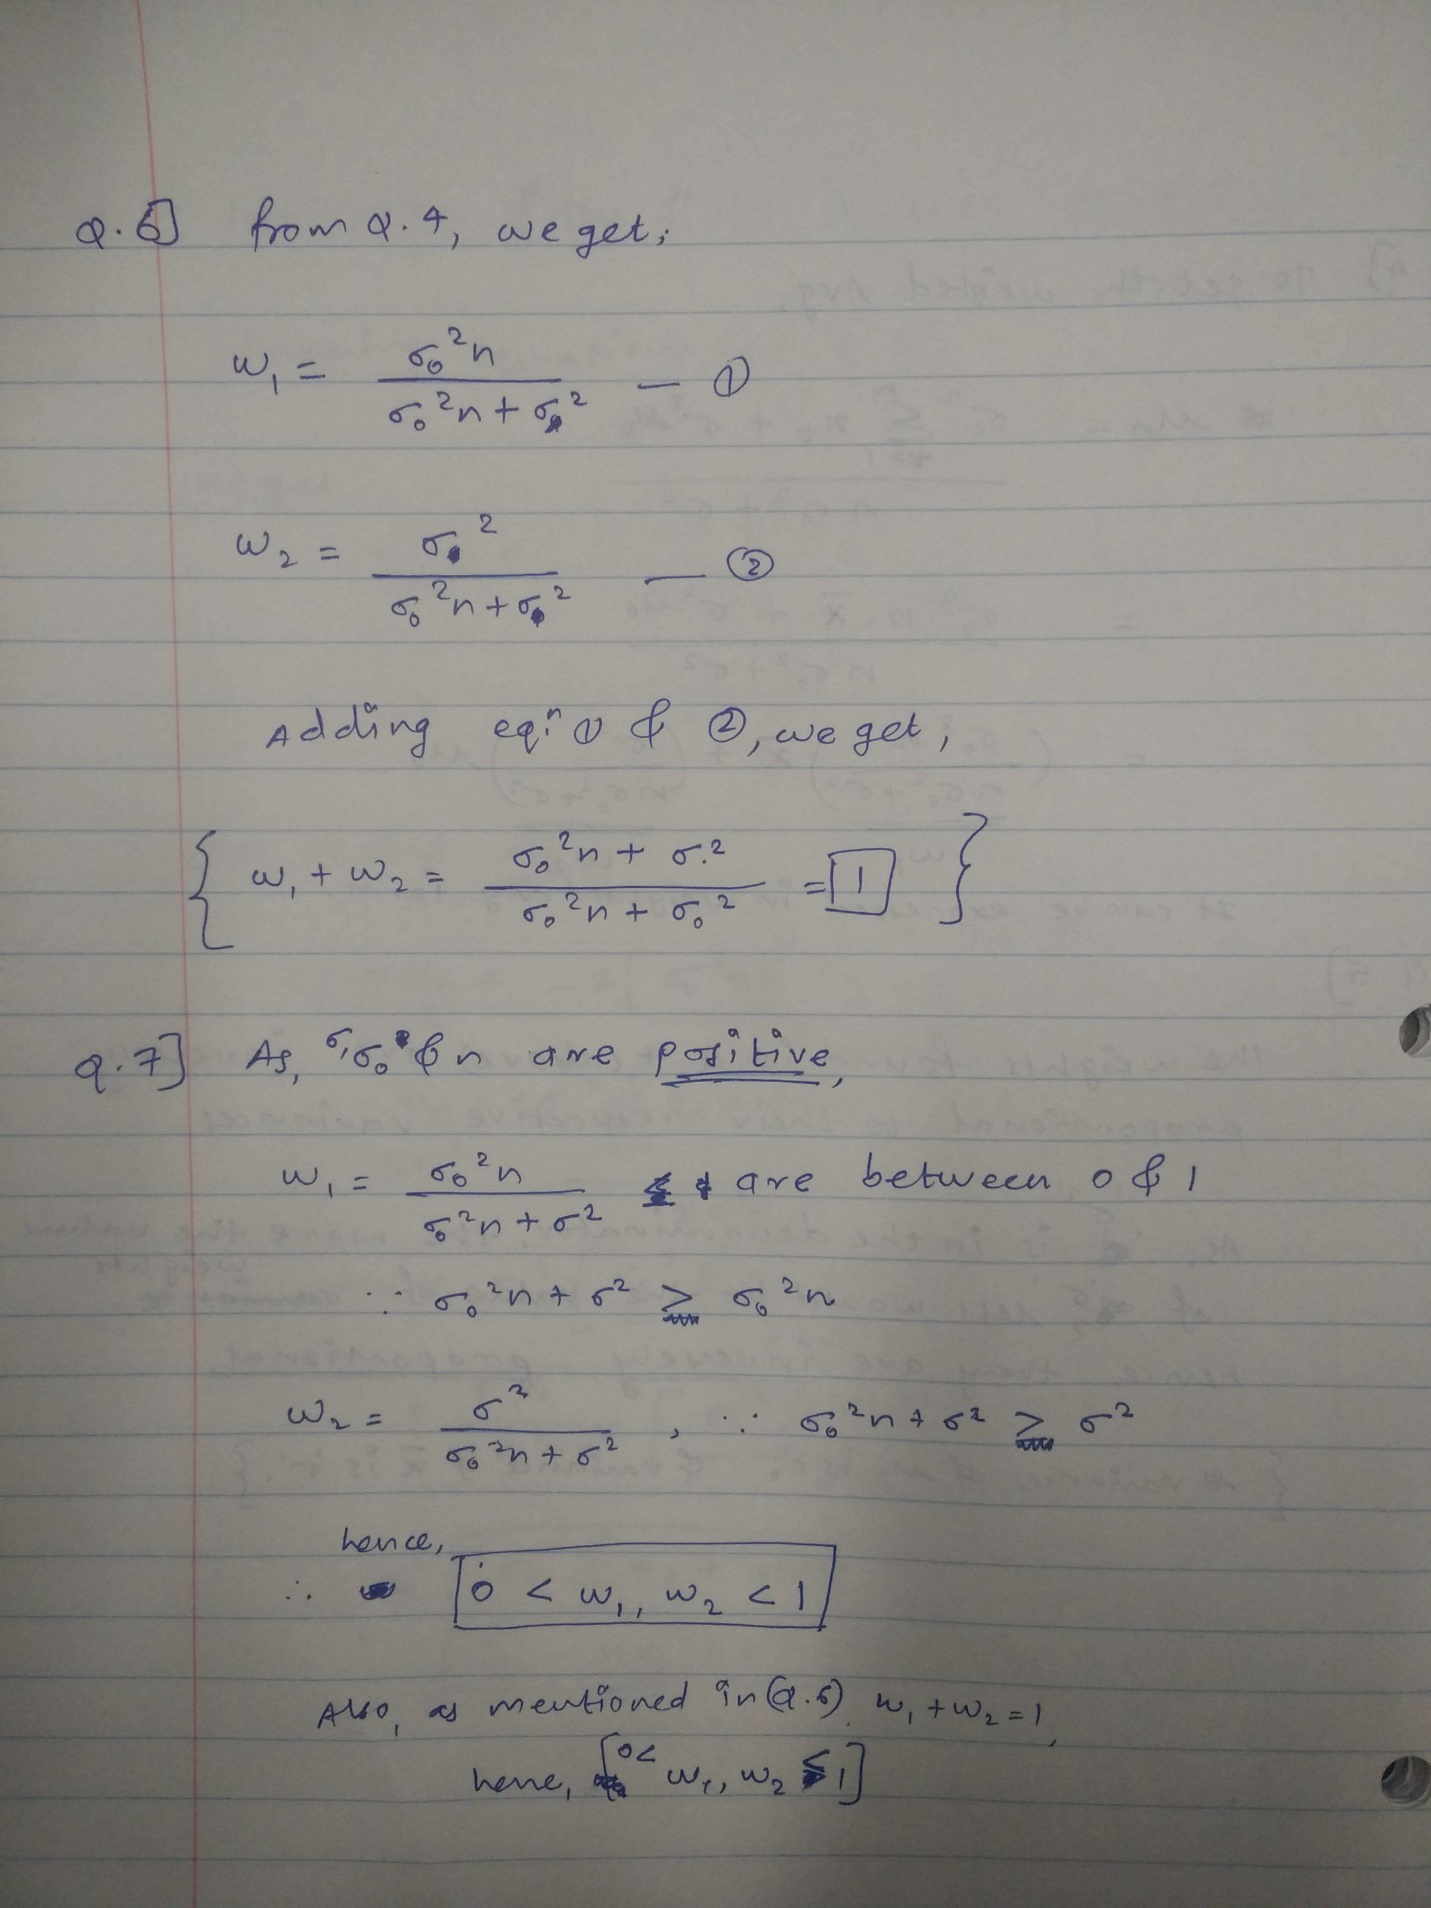 Q.6] from Q.4, we get;
w₁ = σ₀²n / σ₀²n + σ² — ①
w₂ = σ² / σ₀²n + σ² — ②
Adding eqⁿ ① & ②, we get,
{ w₁ + w₂ = σ₀²n + σ² / σ₀²n + σ₀² = 1 }
Q.7] As, σ, σ₀ & n are positive,
w₁ = σ₀²n / σ₀²n + σ² are between 0 & 1
∵ σ₀²n + σ² ≥ σ₀²n
w₂ = σ² / σ₀²n + σ² , ∵ σ₀²n + σ² ≥ σ²
hence,
∴ 0 < w₁, w₂ < 1
Also, as mentioned in (Q.6), w₁ + w₂ = 1,
hene, [0 < w₁, w₂ ≤ 1]